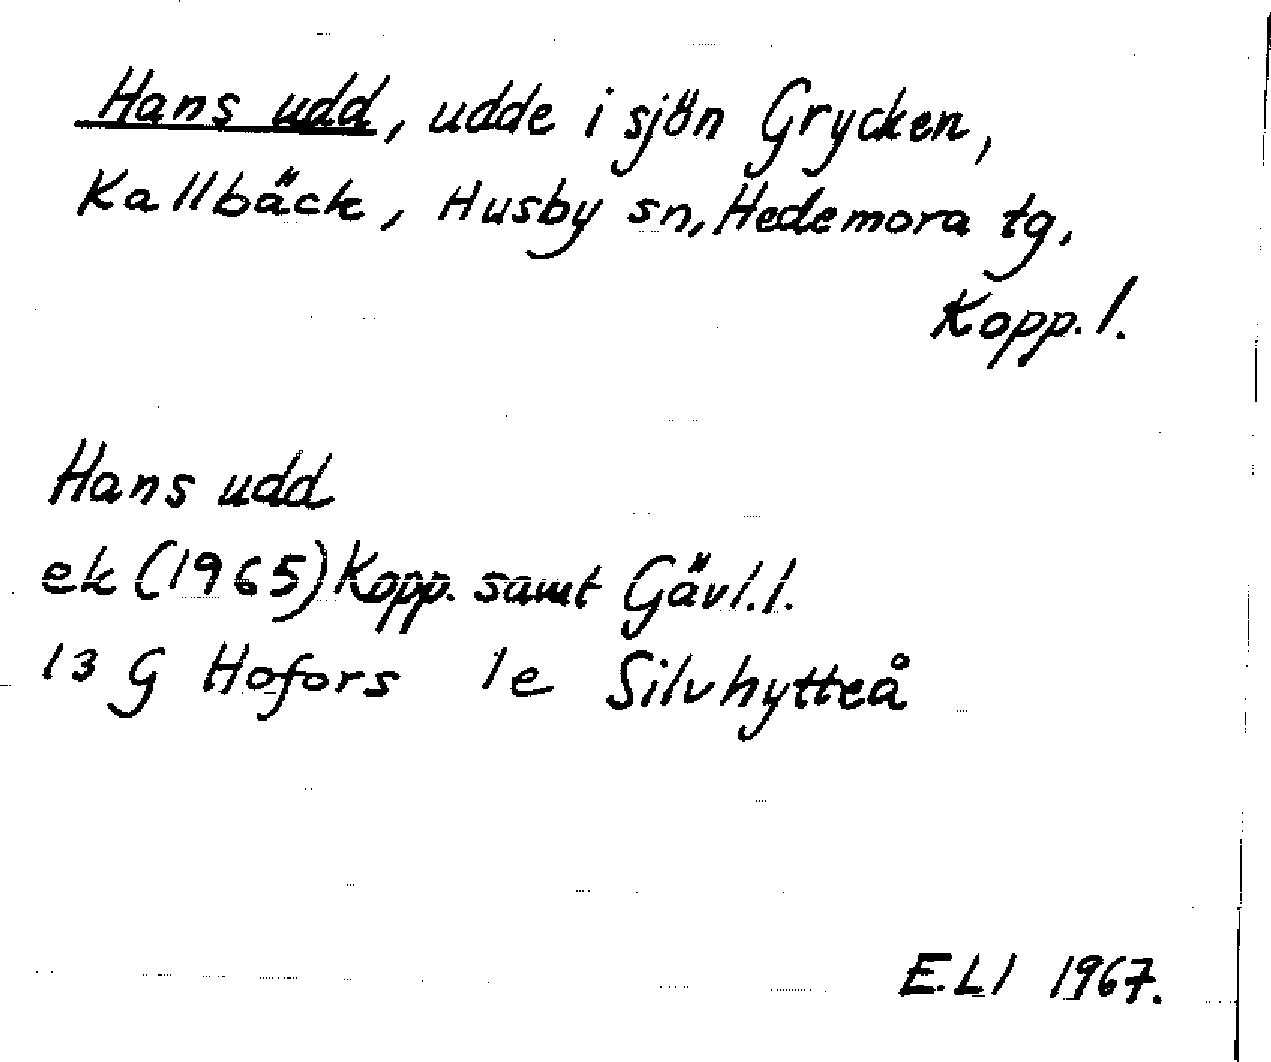 Hans udd, udde i sjön Grycken,
Kallbäck, Husby sn, Hedemora tg,
Kopp. l.
Hans udd
ek (1965) Kopp. samt Gävl. l.
13 G Hofors 1e Silvhytteå
E.Ll 1967.